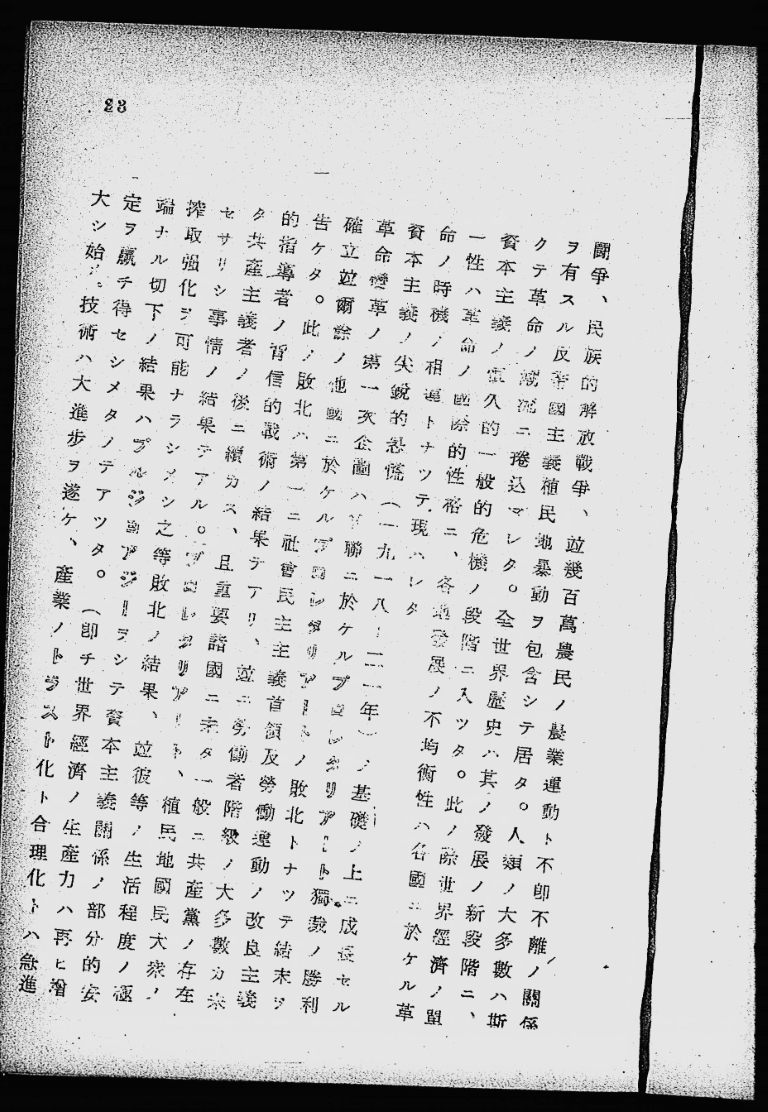 23
闘爭、民族的解放戰爭、竝幾百萬農民ノ農業運動ト不卽不離ノ關係
ヲ有スル反帝國主義植民地暴動ヲ包含シテ居タ。人類ノ大多數ハ斯
クテ革命ノ渦流ニ捲込マレタ。全世界歷史ハ其ノ發展ノ新段階ニ、
資本主義ノ恒久的一般的危機ノ段階ニ入ツタ。此ノ際世界經濟ノ單
一性ハ革命ノ國際的性格ニ、各地發展ノ不均衡性ハ各國ニ於ケル革
命ノ時機ノ相違トナツテ現ハレタ
資本主義ノ尖銳的恐慌(一九一八-二一年)ノ基礎ノ上ニ成長セル
革命變革ノ第一次企圖ハソ聯ニ於ケルプロレタリアート獨裁ノ勝利
確立竝爾餘ノ他國ニ於ケルプロレタリアートノ敗北トナツテ結末ヲ
告ケタ。此ノ敗北ハ第一ニ社會民主主義首領及勞働運動ノ改良主義
的指導者ノ背信的戰術ノ結果テアリ、竝ニ勞働者階級ノ大多數カ未
タ共產主義者ノ後ニ續カス、且重要諸國ニ未タ一般ニ共產黨ノ存在
セサリシ事情ノ結果テアル。プロレタリアート、植民地國民大衆ノ
搾取强化ヲ可能ナラシメシ之等敗北ノ結果、竝彼等ノ生活程度ノ極
端ナル切下ノ結果ハブルジヨアジーヲシテ資本主義關係ノ部分的安
定ヲ贏チ得セシメタノテアツタ。(卽チ世界經濟ノ生產力ハ再ヒ增
大シ始メ技術ハ大進步ヲ遂ケ、產業ノトラスト化ト合理化トハ急進